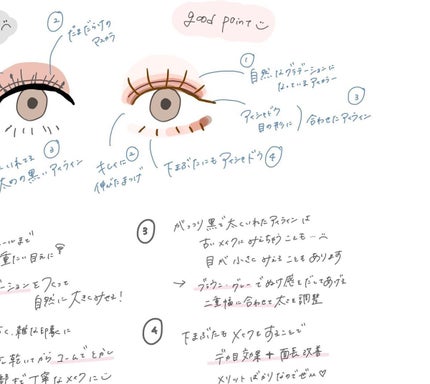 good point
②
だまだらけの
マスカラ
①
自然なグラデーションに
なっているアイカラー
③
アイシャドウ
目の形に
合わせたアイライン
③
太めの黒いアイライン
キレイに②
伸びたまつげ
下まぶたにもアイシャドウ④
③
がっつり黒で太くいれたアイラインは
古いメイクにみえちゃうことも…
目が小さくみえることもあります
→ ブラウン・グレーでぬけ感をだしてあげる
二重幅に合わせて太さを調整
重たい目元に
自然に大きくみせる!
雑な印象に
乾いてからコームでとかし
丁寧なメイクに
④
下まぶたもメイクをすることで
デカ目効果+面長改善
メリットばかりなのでぜひ♡